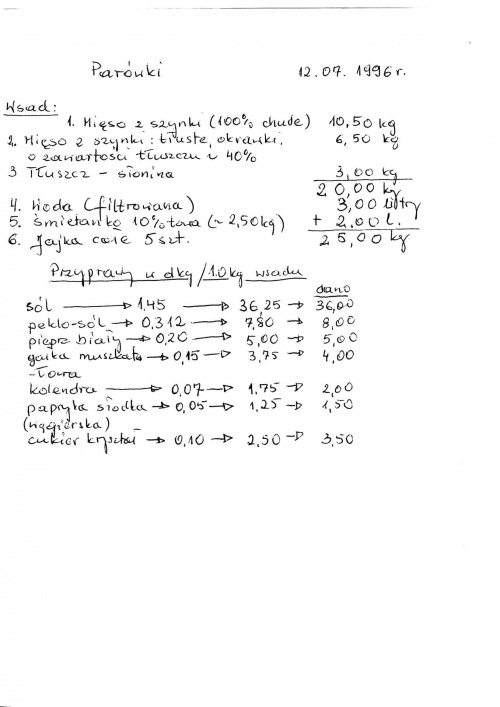 Parówki 12.07.1996 r.
Wsad:
1. Mięso z szynki (100% chude) 10,50 kg
2. Mięso z szynki: tłuste, okrawki, 6,50 kg
o zawartości tłuszczu ~ 40%
3 Tłuszcz - słonina 3,00 kg
20,00 kg
4. Woda (filtrowana) 3,00 litry
5. śmietanka 10% towa (~ 2,50kg) + 2,00 l.
6. Jajka całe 5 szt. 25,00 kg
Przyprawy w dkg/1.0kg wsadu
dano
sól → 1,45 → 36,25 → 36,00
peklo-sól → 0,312 → 7,80 → 8,00
pieprz biały → 0,20 → 5,00 → 5,00
gałka muszkato → 0,15 → 3,75 → 4,00
-łowa
kolendra → 0,07 → 1,75 → 2,00
papryka słodka → 0,05 → 1,25 → 1,50
(węgierska)
cukier kryształ → 0,10 → 2,50 → 3,50